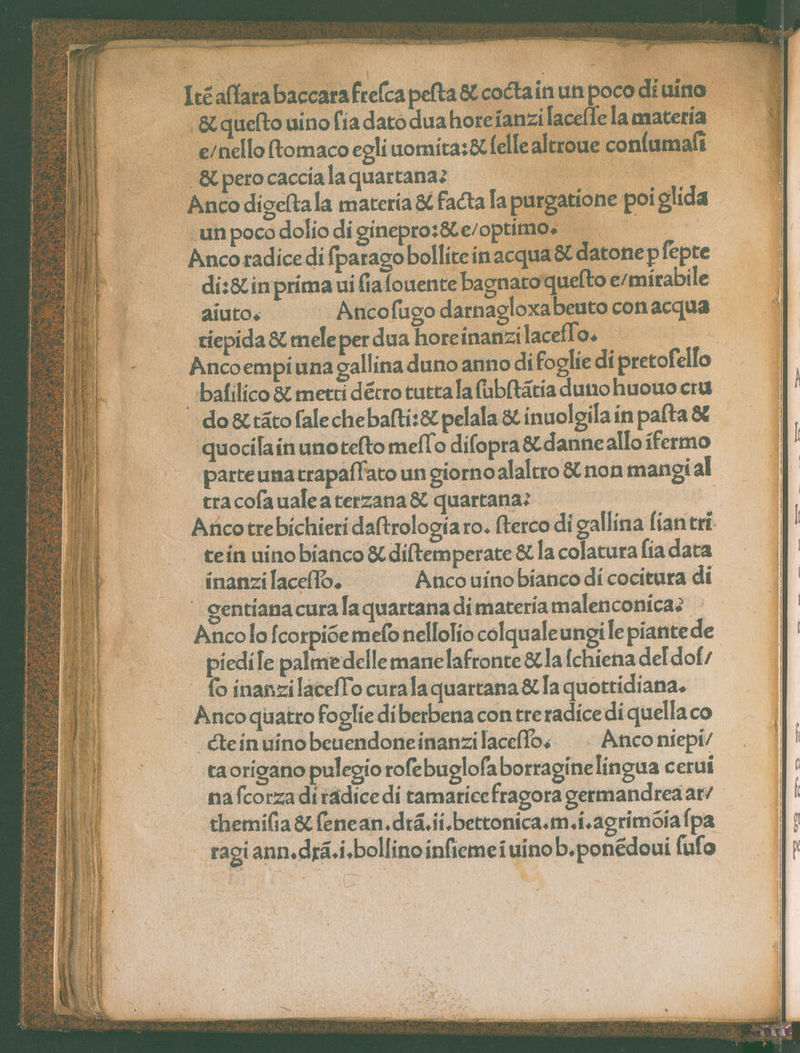 Itē aſſara baccara freſca peſta & cocta in un poco di uino
& queſto uino ſia dato dua hore ianzi laceſſe la materia
e/nello ſtomaco egli uomita:& ſelle altroue conſumaſi
& pero caccia la quartana?
Anco digeſta la materia & facta la purgatione poi glida
un poco dolio di ginepro:& e/optimo.
Anco radice di ſparago bollite in acqua & datone p ſepte
di:& in prima ui ſia ſouente bagnato queſto e/mirabile
aiuto. Anco ſugo darnagloxa beuto con acqua
tiepida & mele per dua hore inanzi laceſſo.
Anco empi una gallina duno anno di foglie di pretoſello
baſilico & metti dētro tutta la ſubſtātia duno huouo cru
do & tāto ſale che baſti:& pelala & inuolgila in paſta &
quocila in uno teſto meſſo diſopra & danne allo ifermo
parte una trapaſſato un giorno alaltro & non mangi al
tra coſa uale a terzana & quartana?
Anco tre bichieri daſtrologia ro. ſterco di gallina ſian tri
te in uino bianco & diſtemperate & la colatura ſia data
inanzi laceſſo. Anco uino bianco di cocitura di
gentiana cura la quartana di materia malenconica?
Anco lo ſcorpiōe meſo nellolio colquale ungi le piante de
piedi le palme delle mane lafronte & la ſchiena del doſ/
ſo inanzi laceſſo cura la quartana & la quottidiana.
Anco quatro foglie di berbena con tre radice di quella co
cte in uino beuendone inanzi laceſſo. Anco niepi/
ta origano pulegio roſe bugloſa borragine lingua cerui
na ſcorza di radice di tamarice fragora germandrea ar/
themiſia & ſenean.drā.ii.bettonica.m.i.agrimōia ſpa
ragi ann.drā.i.bollino inſieme i uino b.ponēdoui ſuſo